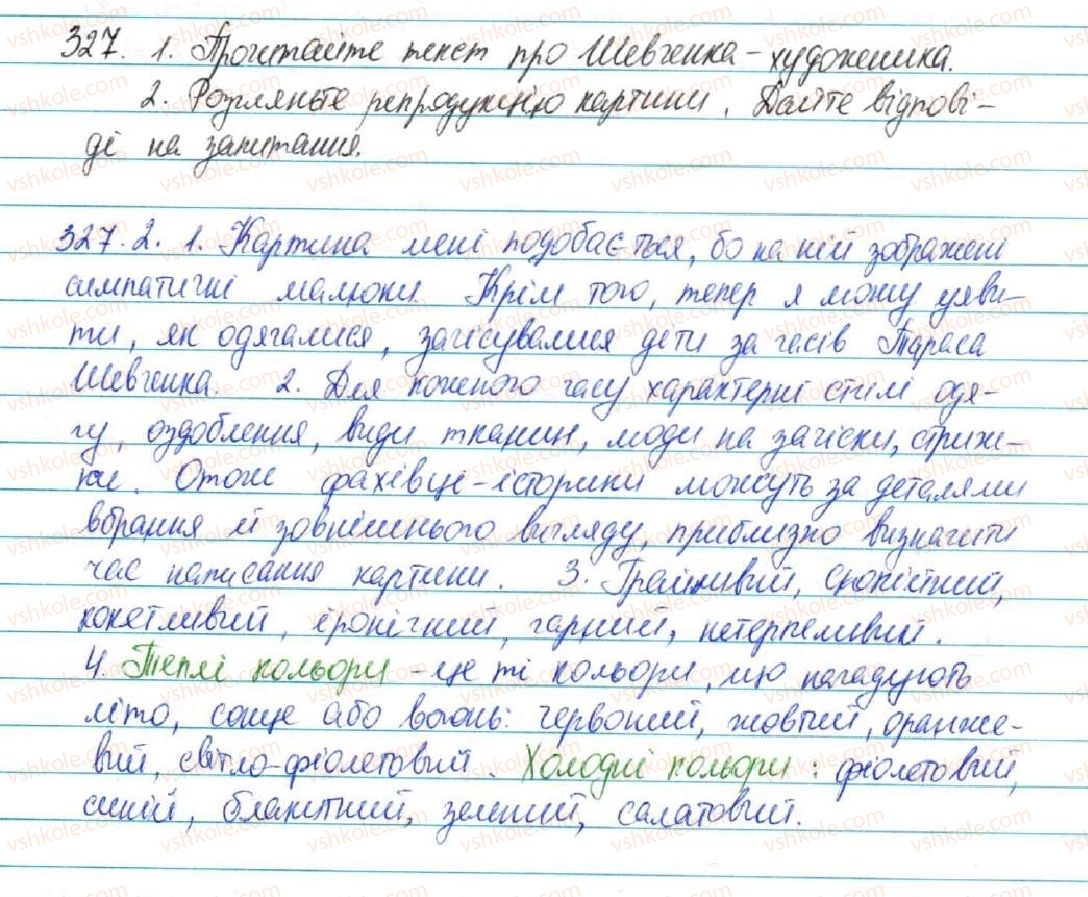 327. 1. Прочитайте текст про Шевченка-художника.
2. Розгляньте репродукцію картини. Дайте відпові-
ді на запитання.
327. 2. 1. Картина мені подобається, бо на ній зображені
симпатичні малюки. Крім того, тепер я можу уяви-
ти, як одягалися, зачісувалися діти за часів Тараса
Шевченка. 2. Для кожного часу характерні стилі одя-
гу, оздоблення, види тканин, моди на зачіски, стриж-
ки. Отже фахівці-історики можуть за деталями
вбрання й зовнішнього вигляду, приблизно визначити
час написання картини. 3. Грайливий, спокійний,
кокетливий, іронічний, гарний, нетерпеливий.
4. Теплі кольори - це ті кольори, що нагадують
літо, сонце або вогонь: червоний, жовтий, оранже-
вий, світло-фіолетовий. Холодні кольори: фіолетовий,
синій, блакитний, зелений, салатовий.